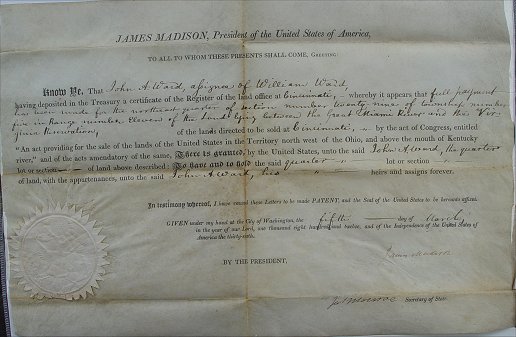 JAMES MADISON, President of the United States of America,
TO ALL TO WHOM THESE PRESENTS SHALL COME, GREETING:
Know Ye, That John A. Ward, assignee of William Ward,
having deposited in the Treasury a certificate of the Register of the land office at Cincinnati, whereby it appears that full payment
has been made for the northeast quarter of section number twenty nine of township number
five in Range number Eleven of the Lands lying between the Great Miami River and the Vir-
ginia Reservation, of the lands directed to be sold at Cincinnati, by the act of Congress, entitled
"An act providing for the sale of the lands of the United States in the Territory north west of the Ohio, and above the mouth of Kentucky
river," and of the acts amendatory of the same, There is granted, by the United States, unto the said John A. Ward, the quarter
lot or section of land above described: To have and to hold the said quarter lot or section
of land, with the appurtenances, unto the said John A. Ward, his heirs and assigns forever.
In testimony whereof, I have caused these Letters to be made PATENT, and the Seal of the United States to be hereunto affixed.
GIVEN under my hand at the City of Washington, the fifth day of March
in the year of our Lord, one thousand eight hundred and twelve, and of the Independence of the United States of
America the thirty-sixth.
James Madison
BY THE PRESIDENT,
Jas Monroe Secretary of State